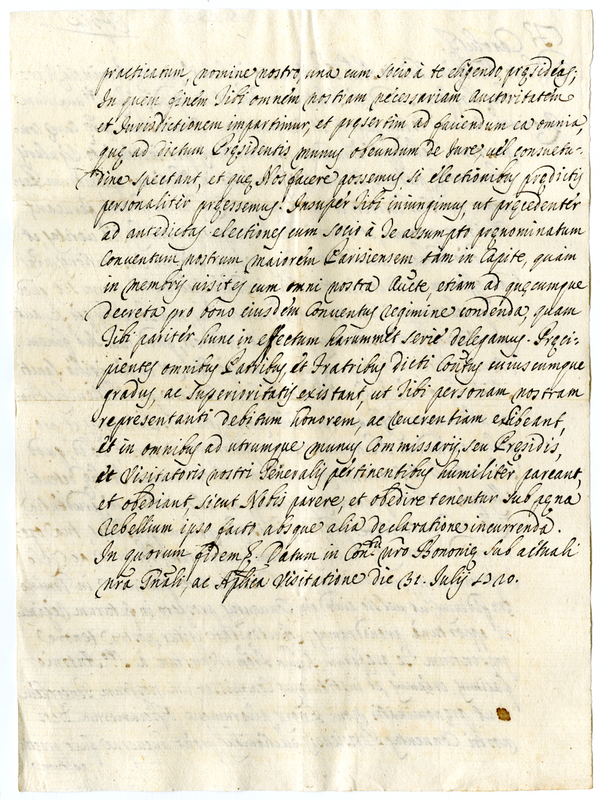 practicarum, nomine nostro, una cum socio à te eligendo, pręsideas;
In quem finem tibi omnem nostram necessariam autoritatem
et Iurisdictionem impartimur, et pręsertim ad faciendum ea omnia,
quę ad dictum Pręsidentis munus obeundum de iure vel consuetu-
dine spectant, et quę Nos facere possemus si electionibus prędictis
personaliter pręessemus. Insuper tibi iniungimus, ut pręcedenter
ad antedictas electiones cum socio à te assumpto pręnominatum
Conventum nostrum maiorem Parisiensem tam in Capite, quàm
in membris visites cum omni nostra Aucte, etiam ad quęcumque
decreta pro bono eiusdem Conventus regimine condenda, quam
tibi pariter hunc in effectum harummet serie delegamus. Pręci-
pientes omnibus Patribus et Fratribus dicti Contus cuiuscumque
gradus, ac superioritatis existant, ut tibi personam nostram
repręsentanti debitum honorem, ac reverentiam exibeant,
et in omnibus ad utrumque munus Commissarij, seu Pręsidis,
et Visitatoris nostri Generalis pertinentibus humiliter pareant,
et obediant, sicut Nobis parere, et obedire tenentur sub pęna
rebellium ipso facto absque alia declaratione incurrenda.
In quorum fidem &. Datum in Conu nro Bononię sub actuali
nra Gnali ac Aplica Visitatione die 31. Julij 1710.